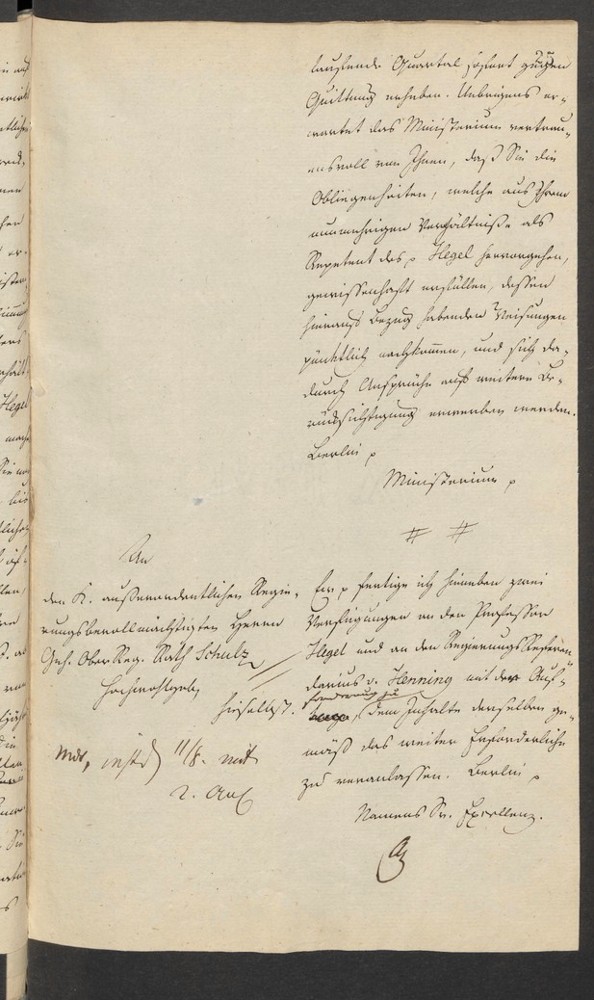 laufende Quartal sofort gegen
Quittung erheben. Uebrigens er-
wartet das Ministerium vertrau-
ensvoll von Ihnen, daß Sie die
Obliegenheiten, welche aus Ihrem
nunmehrigen Verhältniße als
Repetent des p Hegel hervorgehen,
gewissenhaft erfüllen, dessen
hierauf Bezug habenden Weisungen
pünktlich nachkommen, und sich da-
durch Ansprüche auf weitere Be-
rücksichtigung erwerben werden.
Berlin p
Ministerium p
An
den K. außerordentlichen Regie-
rungsbevollmächtigten Herrn
Geh. Ober Reg. Rath Schulz
Hochwohlgeb.
hieselbst.
11/8. mit
2. Anl
Ew p fertige ich hieneben zwei
Verfügungen an den Professor
Hegel und an den Regierungs Referen-
darius v. Henning mit der Auf-
forderung zu
dem Inhalte derselben ge-
mäß das weiter Erforderliche
zu veranlassen. Berlin p
Namens Sr. Excellenz.